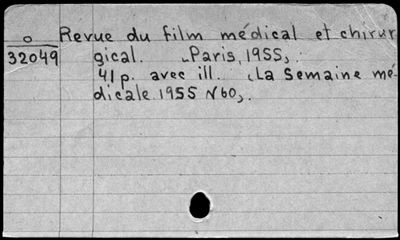 o Revue du film médical et chirur
32049 gical. Paris, 1955,.
41 p. avec ill. (La Semaine mé-
dicale 1955 N60,.